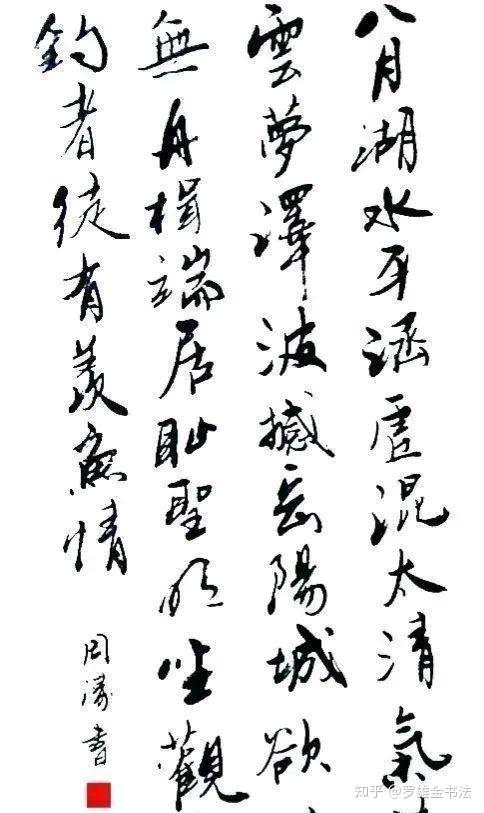 八月湖水平涵虛混太清氣
雲夢澤波撼岳陽城欲
無舟楫端居耻聖明坐觀
釣者徒有羨魚情
周濤書
知乎 @罗雄金书法